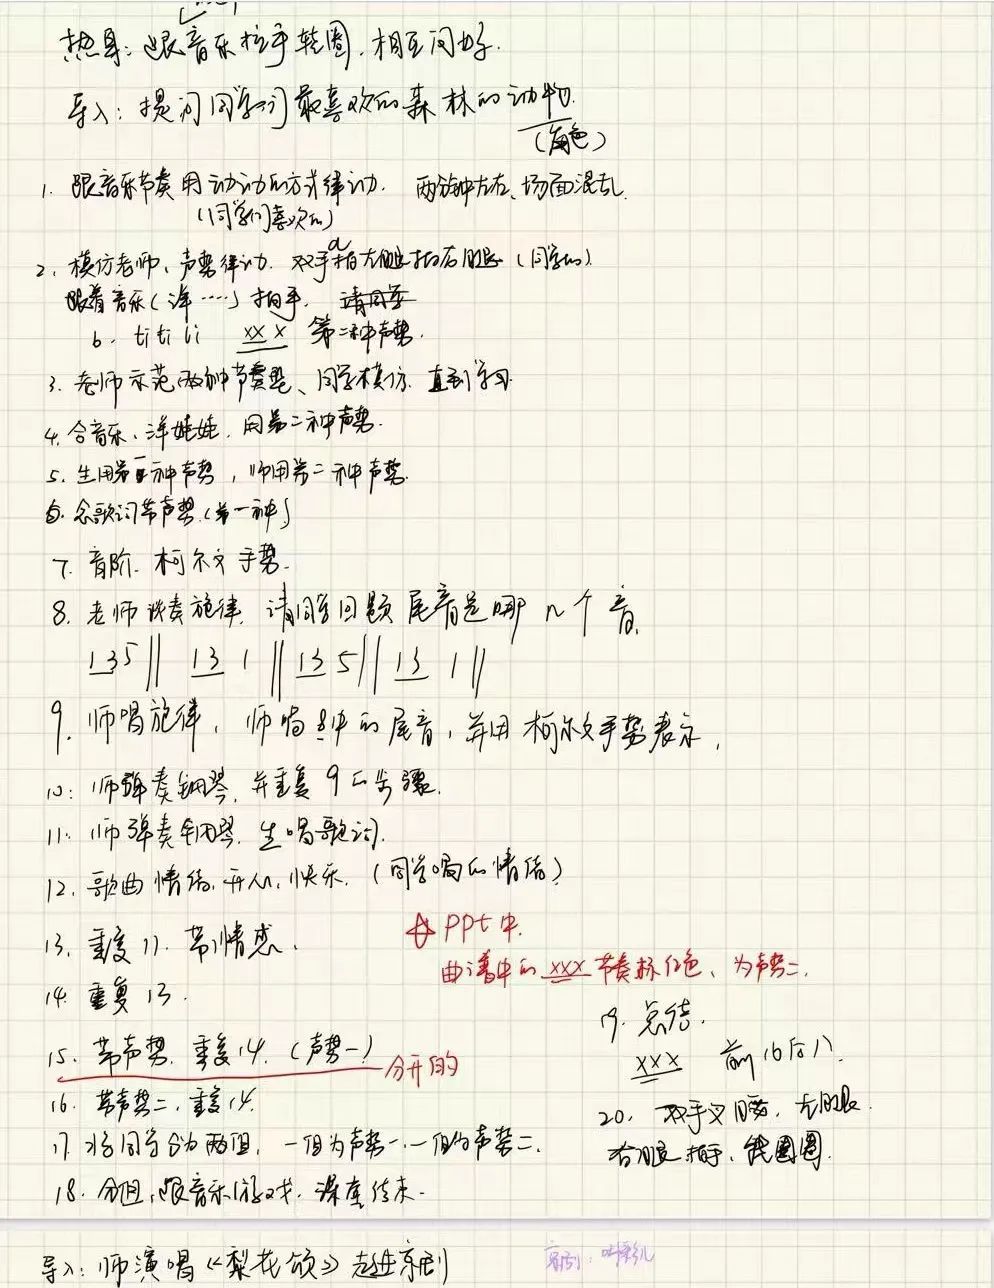 热身：跟音乐拉手转圈，相互问好.
导入：提问同学们最喜欢的森林的动物.
（角色）
1. 跟音乐节奏用动动的方式律动. 两分钟左右、场面混乱.
（同学们喜欢的）
2. 模仿老师、声势律动. a 双手拍左腿拍右腿（同学的）
跟着音乐（洋....）拍手. 请同学
b. ti ti ti xx x 第二种声势.
3. 老师示范两种节奏型、同学模仿. 直到学习
4. 合音乐、洋娃娃，用第二种声势.
5. 生用第一种声势，师用第二种声势.
6. 念歌词带声势.（第一种）
7. 音阶. 柯尔文手势.
8. 老师弹奏旋律. 请同学回题尾音是哪几个音.
135 || 13 1 || 13 5 || 13 1 ||
9. 师唱旋律，师唱中的尾音，并用柯尔文手势表示，
10: 师弹奏钢琴，并重复9的步骤.
11: 师弹奏钢琴. 生唱歌词.
12. 歌曲情绪. 开心，快乐.（同学唱的情绪）
13. 重复11. 带情感、
PPt中.
曲谱中的 xxx 节奏标红色、为声势二.
14. 重复13.
15. 带声势. 重复14.（声势一）
分开的
16. 带声势二，重复14.
17. 将同学分为两组，一组为声势一，一组为声势二.
18. 分组，跟音乐游戏. 课堂结束.
19. 总结.
xxx 前16后八.
20. 双手叉腰，左腿.
右腿拍手、转圈圈.
导入：师演唱《梨花颂》走进京剧